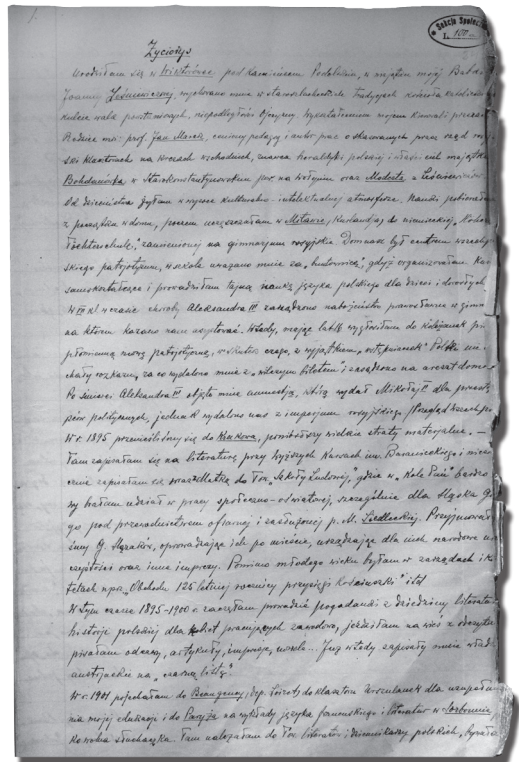 1.
Sekcja Społecz
L. 100
Życiorys
Urodziłam się w pod Kamieńcem Podolskim, w majątku mojej Babki
Joanny wychowano mnie w staroszlacheckich tradycjach kościoła katolickiego
kulcie walk powstańczych, niepodległości Ojczyzny. Wykształceniem mojem kierowali przeważnie
Rodzice moi: prof. Jan Marek, ceniony pedagog i autor prac o skazowanych przez rząd rosyj
ski klasztorach na kresach wschodnich, znawca heraldyki polskiej i właściciel majątku
Bohdanówka w Starokonstantynowskim pow. na Wołyniu oraz Modesta z
Od dzieciństwa żyłam w wysoce kulturalno-intelektualnej atmosferze. Nauki pobierałam
z początku w domu, potem uczęszczałam w Mitawie, Kurlandzkiej do niemieckiej „Hohere
Töchterschule", zamienionej na gimnazjum rosyjskie. Dom nasz był centrum wszechpol
skiego patrjotyzmu, w szkole uważano mnie za gdyż organizowałam
samokształcące i prowadziłam tajną naukę języka polskiego dla dzieci i dorosłych
W kl. w czasie choroby Aleksandra III zarządzono nabożeństwo prawosławne w gimn
na którem kazano nam asystować. Wtedy, mając lat 16 wygłosiłam do koleżanek
płomienną mowę patrjotyczną, w skutek czego, z wyjątkiem Polki nie
za co wydalono mnie z „wilczym biletem" i zasądzono na areszt domowy
Po śmierci Aleksandra III objęła mnie amnestja, którą wydał Mikołaj II dla przestęp
ców politycznych, jednak wydalono nas z imperjum rosyjskiego,
W r. 1895 przenieśliśmy się do Krakowa, poniósłszy wielkie straty materjalne. —
Tam zapisałam się na literaturę przy Wyższych Kursach im. Baranieckiego i
zapisałam się wraz z Matką do Tow. „Szkoły Ludowej", gdzie w „Kole Pań" bardzo
brałam udział w pracy społeczno-oświatowej, szczególnie dla Śląska
go pod przewodnictwem ofiarnej i zasłużonej p. M. Siedleckiej. Przyjmowa
łyśmy G. Ślązaków, oprowadzając ich po mieście, urządzając dla nich narodowe
czystości oraz inne imprezy. Pomimo młodego wieku byłam w zarządach i
tetach np. „Obchodu 125 letniej rocznicy przysięgi Kościuszki" i td
W tym czasie 1895-1900 r. zaczęłam prowadzić pogadanki z dziedziny literatury
historji polskiej dla kobiet pracujących zawodowo, jeździłam na wieś z odczytami
pisałam odezwy, artykuły, impresje, nowele... Już wtedy zapisały mnie władze
austrjackie na „czarną listę".
W r. 1901 pojechałam do Beaugency, dep. Loiret, do klasztoru Urszulanek dla uzupełnie
nia mojej edukacji i do Paryża na wykłady języka francuskiego i literatur w Sorbonnie
ko wolna słuchaczka. Tam należałam do Tow. literatów i dziennikarzy polskich, byłam